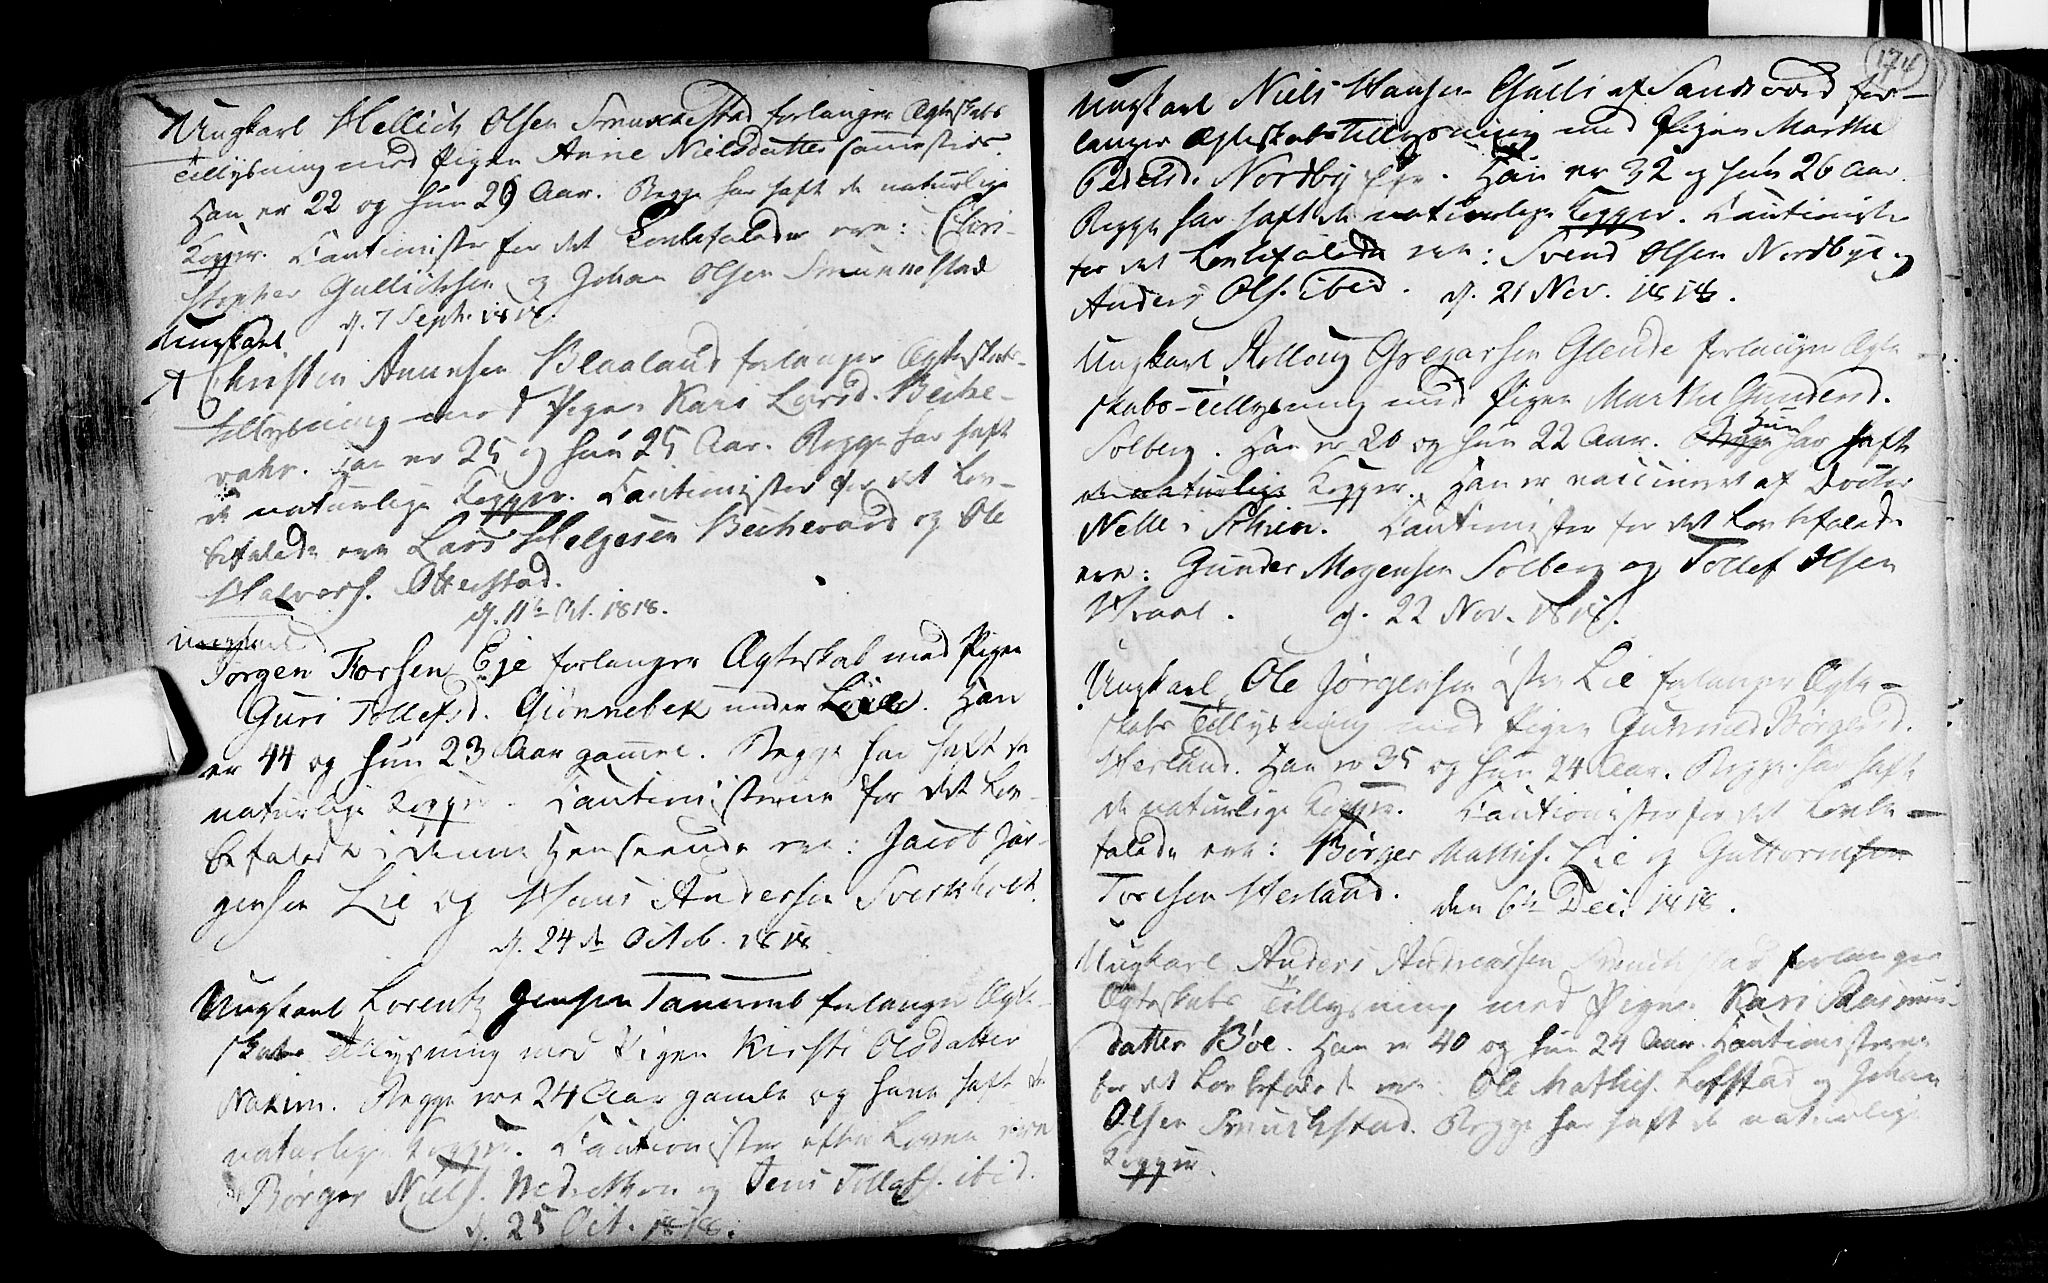 Ungkarl Hellich Olsen forlanger Ægteskabs
Tillysning med Pigen Anne Nielsdatter sammesteds.
Han er 22 og hun 29 Aar. Begge har haft de naturlige
Kopper. Cautionister for det Lovbefalede ere: Chri-
stopher Gullichsen og Johan Olsen
d. 7 Septr. 1818.
Ungkarl
Christen Blaaland forlanger Ægteskabs-
tillysning med Pigen Kari Larsd. Beche-
vahr. Han er 25 og hun 25 Aar. Begge har haft
de naturlige Kopper. Cautionister for det Lov-
befalede ere Lars Helgesen Bechevard og Ole
Halvors. Otterstad.
d. 11te Oct. 1818.
Ungkarl
Jørgen Torsen Eje forlanger Ægteskab med Pigen
Guri Tollefsd. Grønnebek under Han
er 44 og hun 23 Aar gammel. Begge har haft de
naturlige Kopper. Cautionisterne for det Lov-
befalede i denne Henseende ere: Jacob Jør-
gensen Lie og Hans Andersen
d. 24de Octob. 1818
Ungkarl Lorentz Jensen Tanum forlanger Ægte-
skabs Tillysning med Pigen Kirsti Olsdatter
Begge ere 24 Aar gamle og have haft de
naturlige Kopper. Cautionister efter Loven ere
Børger Niels. og Jens ibid.
d. 25 Oct. 1818.
174
Ungkarl Niels Hansen Gulli af for-
langer Ægteskabs Tillysning med Pigen Marthe
Pedersd. Nordby Eje. Han er 32 og hun 26 Aar.
Begge har haft de naturlige Kopper. Cautionister
for det Lovbefalede ere: Svend Olsen Nordbye og
Anders Ols. ibid. d. 21 Nov. 1818.
Ungkarl Gregarsen Glende forlanger Ægte-
skabs-Tillysning med Pigen Marthe Gundersd.
Hun
Solberg. Han er 20 og hun 22 Aar. Begge har haft
de naturlige Kopper. Han er vaccineret af Doctor
Cautionister for det Lovbefalede
ere: Gunder Mogensen Solberg og Tollef Olsen
d. 22 Nov. 1818.
Ungkarl Ole Jørgensen Lie forlanger Ægte-
skabs Tillysning med Pigen Børgersd.
Herland. Han er 35 og hun 24 Aar. Begge har haft
de naturlige Kopper. Cautionister for det Lovbe-
falede ere: Børger Mathis. Lie og Guttormsen
Toresen Herland. den 6te Dec. 1818.
Ungkarl Anders Andreassen forlanger
Ægteskabs Tillysning med Pigen Kari Rasmus-
datter Bøe. Han er 40 og hun 24 Aar. Cautionisterne
for det Lovbefalede ere: Ole Mathis. Lofstad og Johan
Olsen Begge har haft de naturlige
Kopper.